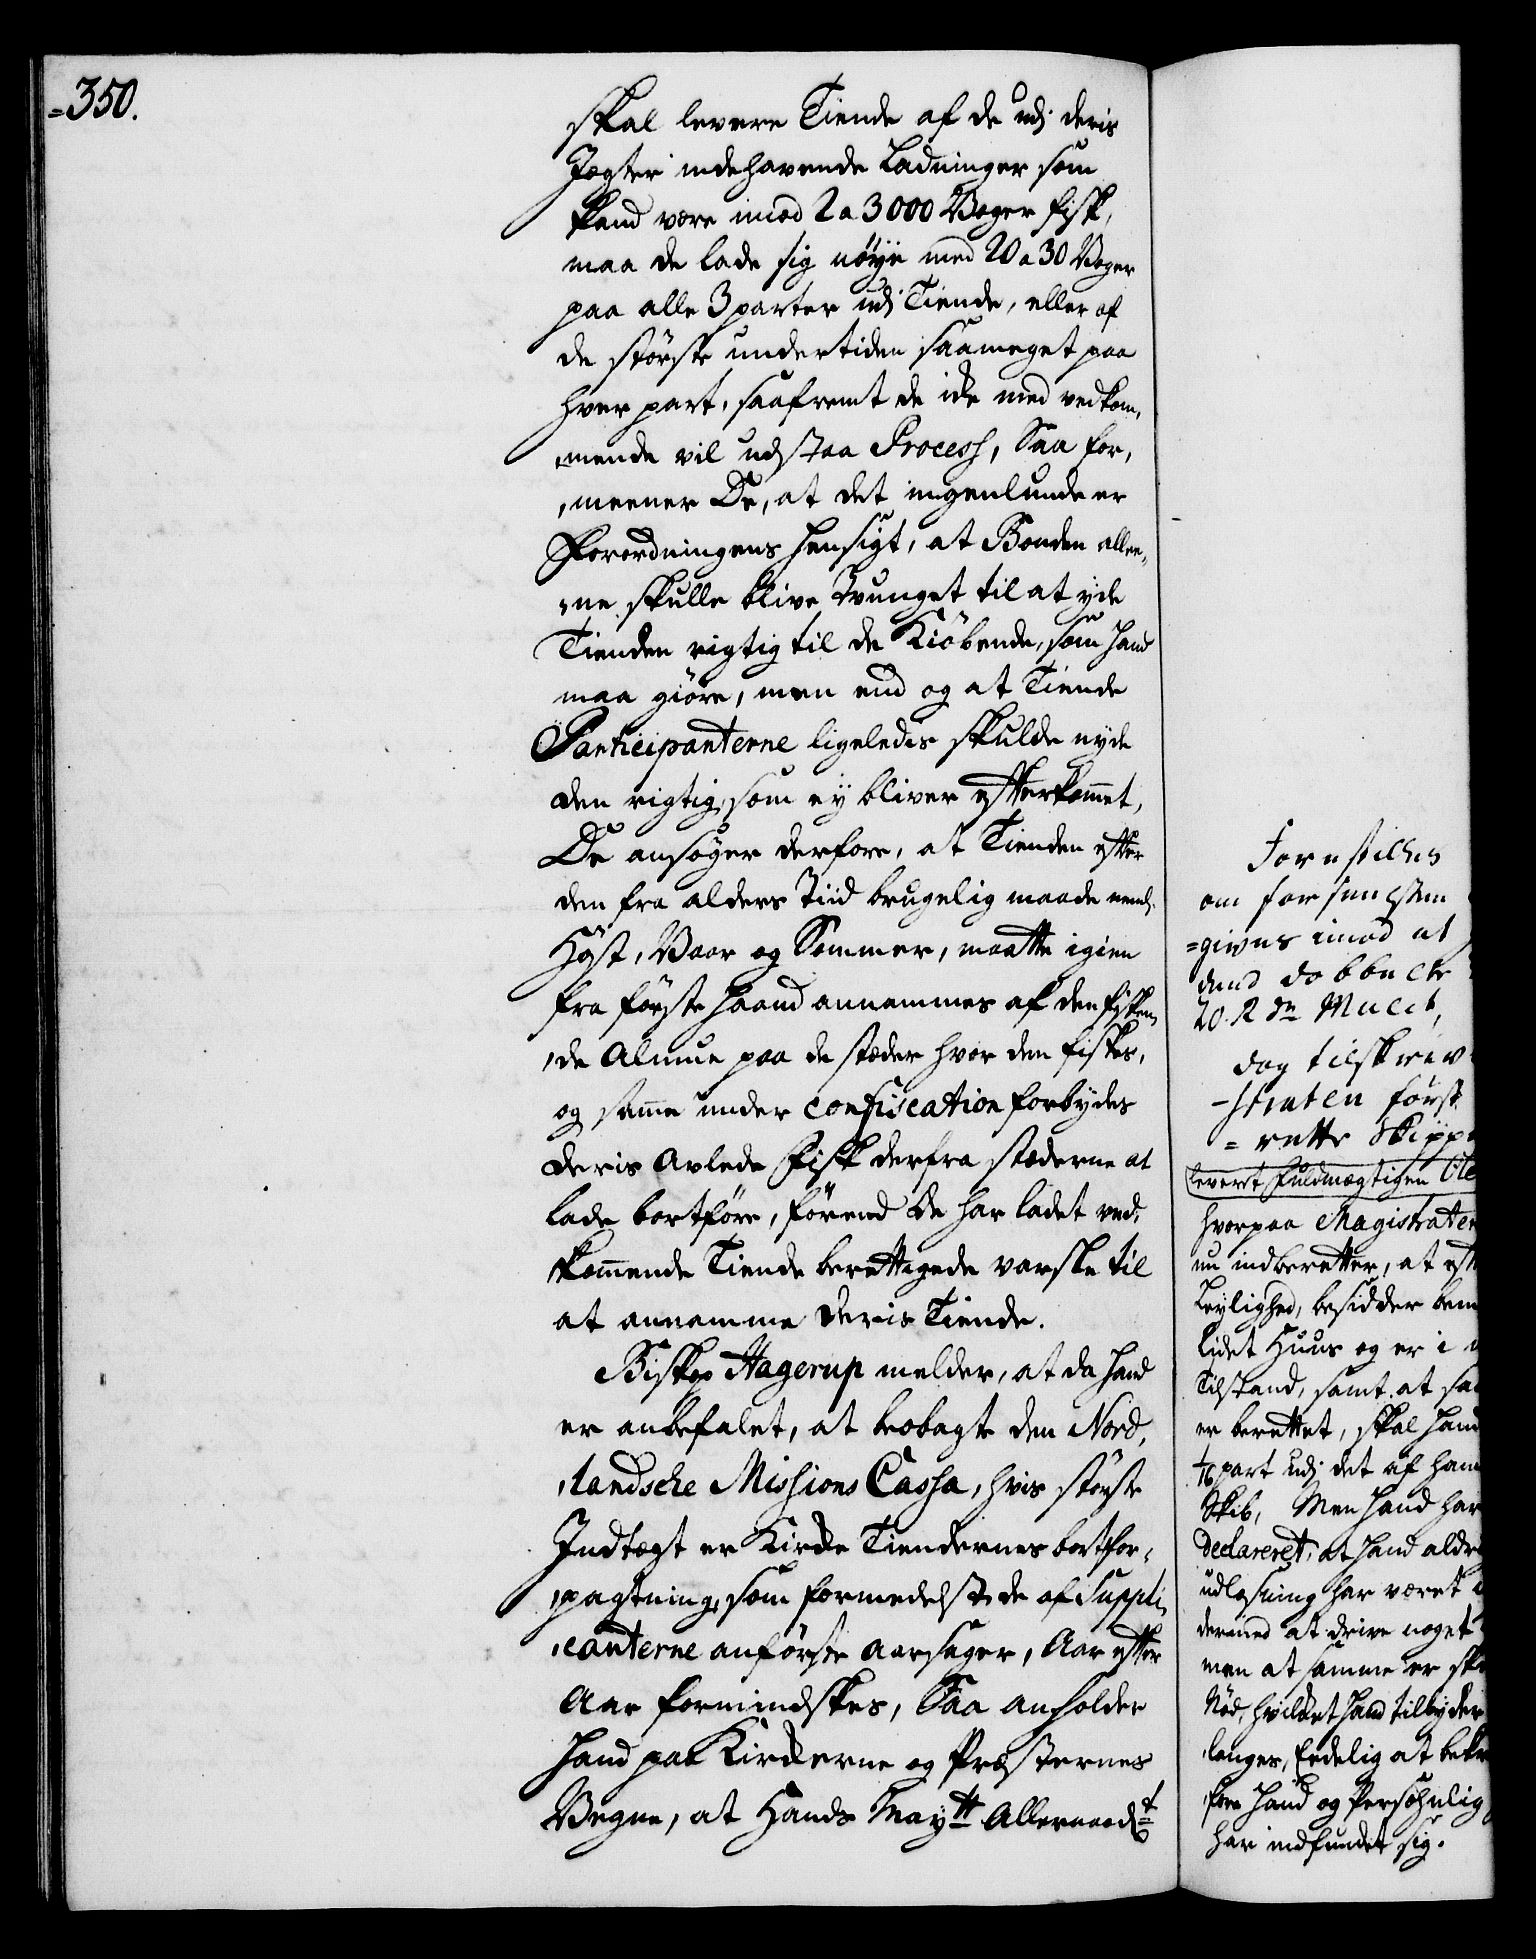 =350.
skal levere Tiende af de udj deris
Jægter indehavende Ladninger som
kand være imod 2 a 3000 Woger fisk,
maa de lade sig nöye med 20 a 30 Woger
paa alle 3 parter udj Tiende, eller af
de störste undertiden saameget paa
hver part, saafremt de icke med vedkom,
,mende vil udstaa Process, Saa for,
,meener De, at det ingenlunde er
Forordningens hensigt, at Bonden allee,
,ne skulle blive tvunget til at yde
Tienden rigtig til de Kiöbende, som hand
maa giöre, men end og at Tiende
Participanterne ligeledes skulde nyde
den rigtig, som ey bliver efterkommet,
De ansöger derfore, at Tienden efter
den fra alders Tiid brugelig maade neml.
Höst, Vaar og Sommer, maatte igien
fra förste Haand annammes af den fisken,
,de Almue paa de stæder hvor den fiskes,
og samme under confiscation forbydes
deris avlede Fisk derfra stæderne at
lade bortföre, förend De har ladet ved,
kommende Tiende berettigede varske til
at annamme deris Tiende.
Biskop Hagerup melder, at da hand
er anbefalet, at beobagte den Nord,
,landsche Missions Cassa, hvis störste
Indtægt er Kirke Tiendernes bortfor,
,pagtning, som formedelst de af Suppli,
,canterne anförte aarsager, Aar efter
Aar formindskes, Saa anholder
hand paa Kirkerne og Præsternes
Vegne, at Hands Maytt Allernaadt
Forestilles
om for
=givns imod at
dend dobbelte
20 Rdr Mulct,
dog tilskrev
-straten först
=rette Skippe
leveret fuldmægtigen Ole
hvorpaa Magistraten
nu indberetter, at eft
Leylighed, besidder bem
lidet Huus og er i
Tilstand, samt at saa
er berettet, skal hand
1/16 part udj det af ham
Skib, Men hand har
declareret, at hand aldrig
udlosning har været
dermed at drive noget
men at samme er ske
Nöd, hvilket hand tilbyder
langes, Eedelig at bekr
fore hand og Persohnlig
har indfundet sig.